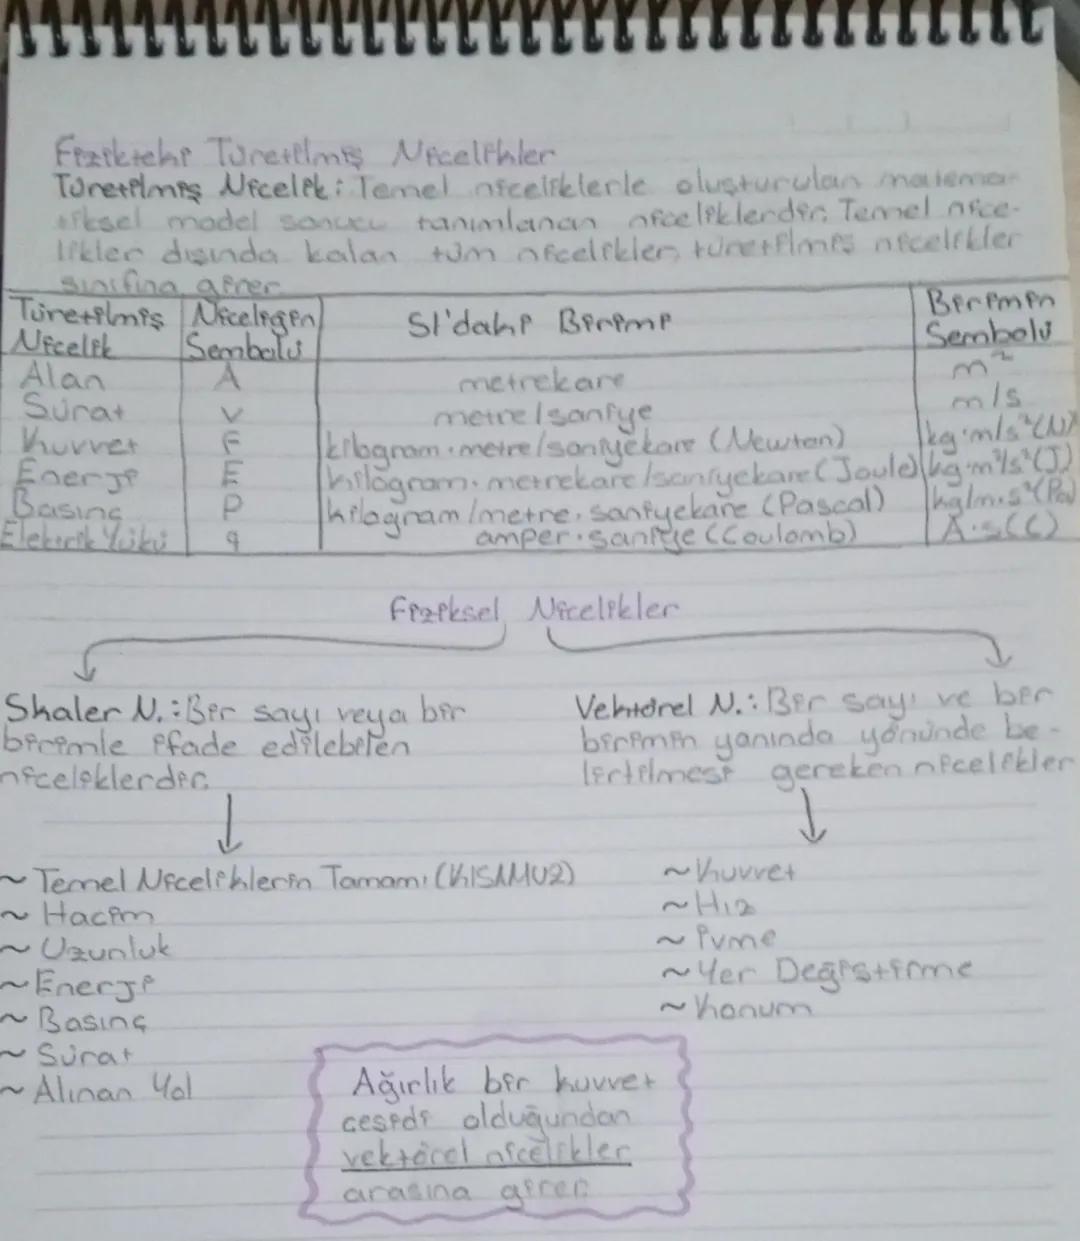 Fizikteki Türetilmiş Nicelikler
Türetilmiş Nicelik: Temel niceliklerle oluşturulan matema-
tiksel model sonucu tanımlanan niceliklerdir. Temel nice-
likler dışında kalan tüm nicelikler, türetilmiş nicelikler
sınıfına girer.
Türetilmiş Nicelik | Niceliğin Sembolü | SI'daki Birimi | Birimin Sembolü
Alan | A | metrekare | m²
Sürat | v | metre/saniye | m/s
Kuvvet | F | kilogram·metre/saniyekare (Newton) | kg·m/s² (N)
Enerji | E | kilogram·metrekare/saniyekare (Joule) | kg·m²/s² (J)
Basınç | P | kilogram/metre.saniyekare (Pascal) | kg/m.s² (Pa)
Elektrik Yükü | q | amper·saniye (Coulomb) | A·s (C)
Fiziksel Nicelikler
Skaler N.: Bir sayı veya bir
birimle ifade edilebilen
niceliklerdir.
Vektörel N.: Bir sayı ve bir
birimin yanında yönünde be-
lirtilmesi gereken nicelikler
~ Temel Niceliklerin Tamamı (KISAMUZ)
~ Hacim
~ Uzunluk
~ Enerji
~ Basınç
~ Sürat
~ Alınan Yol
~ Kuvvet
~ Hız
~ İvme
~ Yer Değiştirme
~ Konum
Ağırlık bir kuvvet
çeşidi olduğundan
vektörel nicelikler
arasına girer.